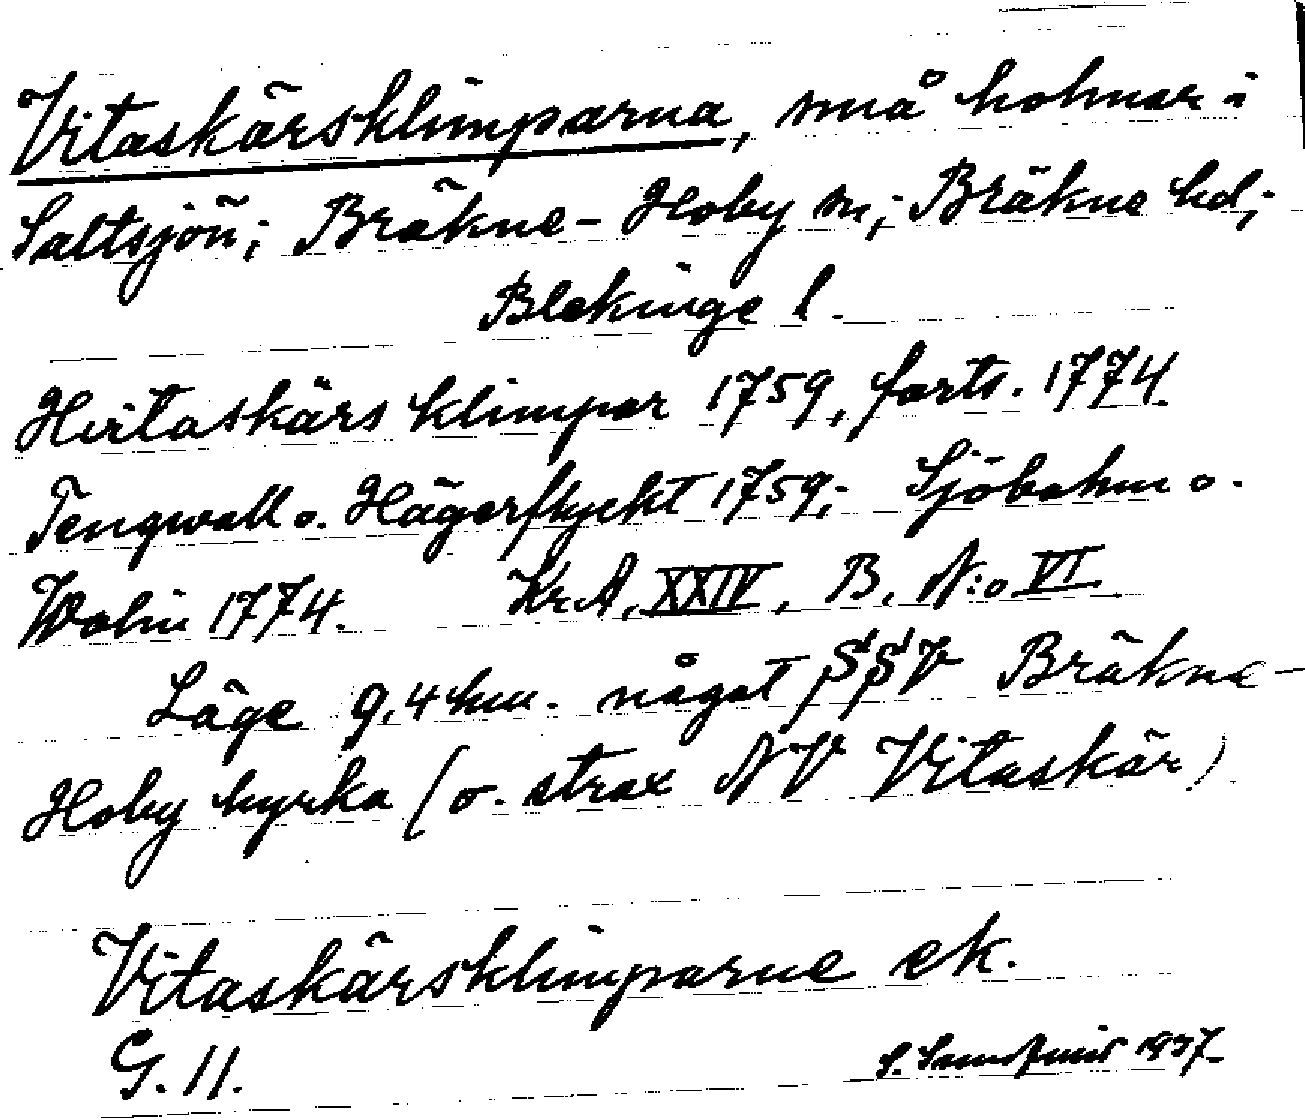 Vitaskärsklimparna, små holmar i
Saltsjön; Bräkne-Hoby sn; Bräkne hd;
Blekinge l.
Hvitaskärs klimpar 1759, forts. 1774
Tengwall o. Hägerflycht 1759; Sjöbohm o.
Wolin 1774. Kr.A. XXIV, B, N:o VI
Läge 9,4 km. något SSV Bräkne-
Hoby kyrka (o. strax NV Vitaskär)
Vitaskärsklimparne ek.
G. 11.
S. 1937